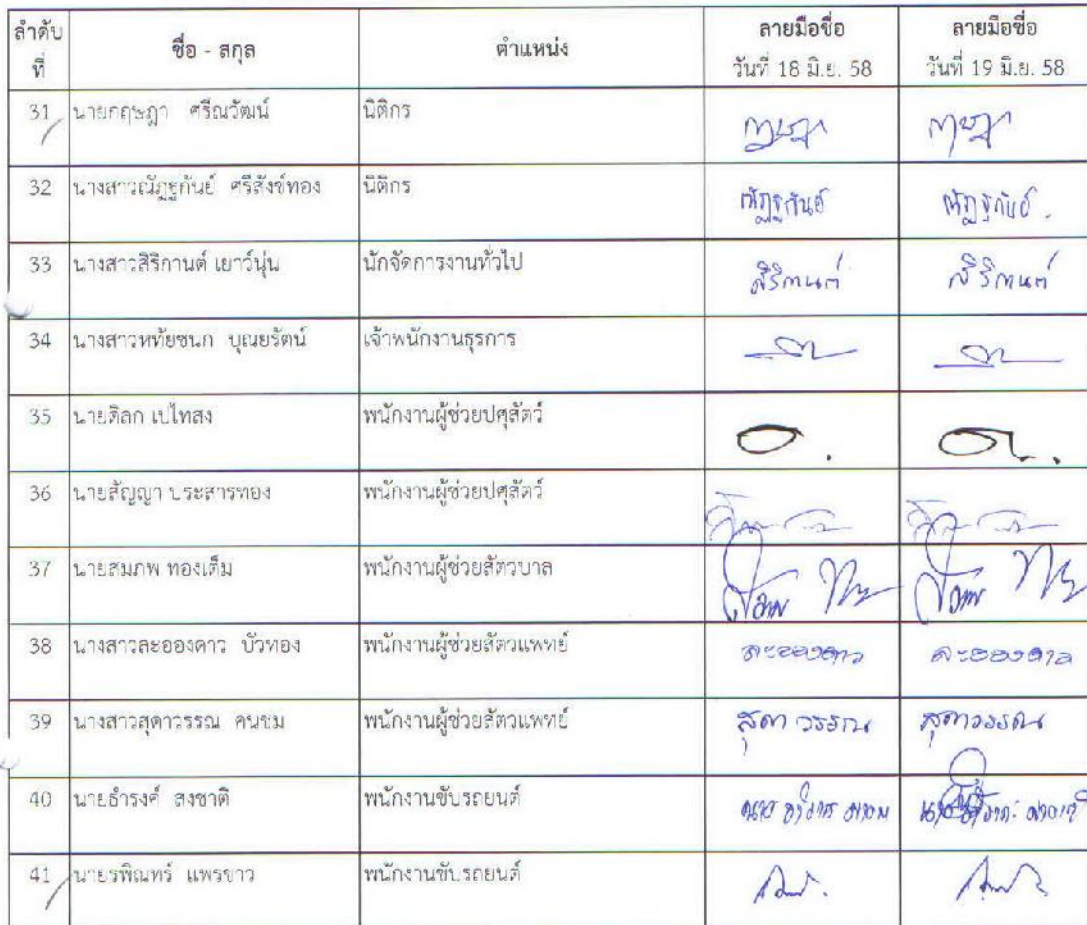 ลำดับ ชื่อ - สกุล ตำแหน่ง ลายมือชื่อ ลายมือชื่อ
ที่ วันที่ 18 มิ.ย. 58 วันที่ 19 มิ.ย. 58
31 นายกฤษฎา ศรีณวัฒน์ นิติกร กฤษฎา กฤษฎา
32 นางสาวณัฏฐกันย์ ศรีสังข์ทอง นิติกร ณัฏฐกันย์ ณัฏฐกันย์
33 นางสาวสิริกานต์ เยาว์นุ่น นักจัดการงานทั่วไป สิริกานต์ สิริกานต์
34 นางสาวหทัยชนก บุณยรัตน์ เจ้าพนักงานธุรการ
35 นายดิลก เปไทสง พนักงานผู้ช่วยปศุสัตว์
36 นายสัญญา ประสารทอง พนักงานผู้ช่วยปศุสัตว์
37 นายสมภพ ทองเต็ม พนักงานผู้ช่วยสัตวบาล
38 นางสาวละอองดาว บัวทอง พนักงานผู้ช่วยสัตวแพทย์ ละอองดาว ละอองดาว
39 นางสาวสุดาวรรณ คนชม พนักงานผู้ช่วยสัตวแพทย์ สุดาวรรณ สุดาวรรณ
40 นายธำรงค์ สงชาติ พนักงานขับรถยนต์
41 นายรพิณทร์ แพรขาว พนักงานขับรถยนต์